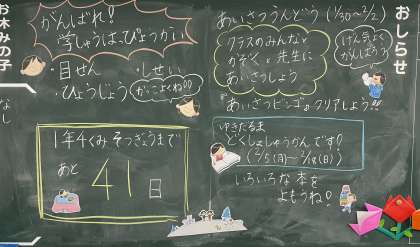 お休みの子
なし
がんばれ!
学しゅうはっぴょうかい
・目せん
・しせい
・ひょうじょう
がっこよくね!!
1年4くみ そつぎょうまで
あと
41日
おしらせ
あいさつうんどう(1/30〜2/2)
クラスのみんなと
かぞくと先生に
あいさつしょう
げん気よく
がんばろう
あいさつビンゴもクリアしよう!!
ゆきだるま
どくしょしゅうかんです!
(2/5(月)〜2/18(日))
いろいろな本を
よもうね!